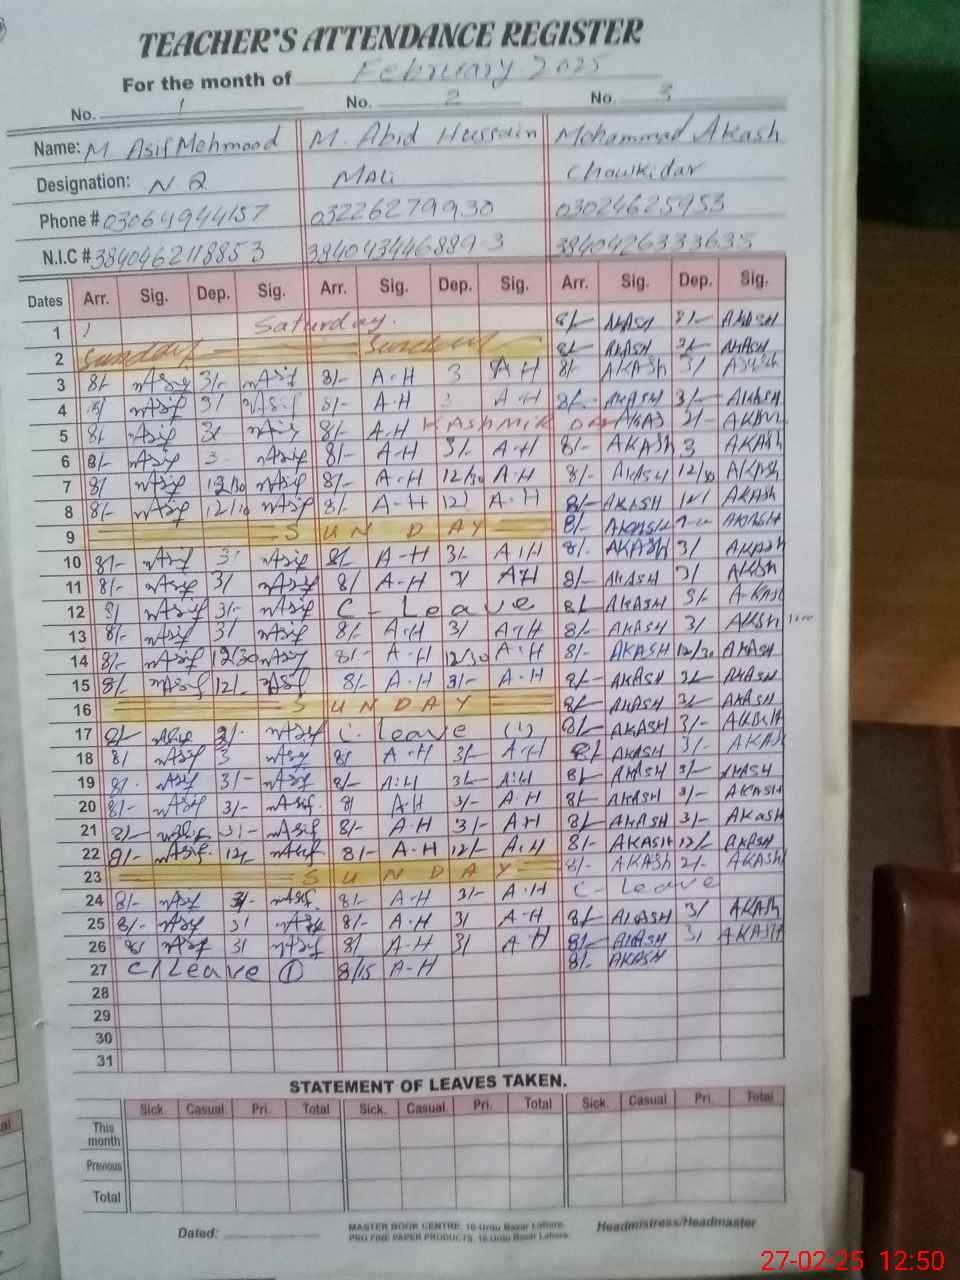 TEACHER'S ATTENDANCE REGISTER
For the month of February 2025
No. 1 No. 2 No. 3
Name: M. Asif Mehmood M. Abid Hussain Mohammad Akash
Designation: N Q Mali Chowkidar
Phone # 03064944157 03226279930 03024625953
N.I.C # 3840462118853 384043446889-3 3840426333635
Dates Arr. Sig. Dep. Sig. Arr. Sig. Dep. Sig. Arr. Sig. Dep. Sig.
1 Saturday. 8/- AKASH AKASH
2 Sunday Sunday 8/- AKASH 3/- AKASH
3 8/- mAsif 3/- mAsif 8/- A-H 3 A H 8/- AKASH 3/
4 8/ mAsif 3/ mAsif 8/- A-H 3 A-H 8/- AKASH 3/- AKASH
5 8/ mAsif 3/ mAsif 8/- A-H KAshmir 2/-
6 8/- mAsif 3- mAsif 8/- A-H 3/- A-H 8/- AKASH 3 AKASH
7 8/ mAsif 12/30 mAsif 8/- A-H 12/30 A-H 8/- AKASH 12/30 AKASH
8 8/- mAsif mAsif 8/- A-H 12/ A-H 8/- AKASH 12/ AKASH
9 SUNDAY 8/- AKASH AKASH
10 8/- mAsif 3/ mAsif 8/- A-H 3/- A-H 8/- AKASH 3/ AKASH
11 8/- mAsif 3/ mAsif 8/ A-H 3/ AH 8/- AKASH 3/ AKASH
12 8/ mAsif 3/- mAsif C-Leave 8/- AKASH 3/- AKASH
13 8/- mAsif 3/ mAsif 8/- A-H 3/ A-H 8/- AKASH 3/ AKASH
14 8/- mAsif 12/30 mAsif 8/- A-H 12/30 A-H 8/- AKASH 12/30 AKASH
15 8/- mAsif 12/- mAsif 8/- A-H 3/- A-H 8/- AKASH 3/- AKASH
16 SUNDAY 8/- AKASH 3/- AKASH
17 8/- mAsif 3/- mAsif C-leave (1) 8/- AKASH 3/- AKASH
18 8/ mAsif 3 mAsif 8/ A-H 3/- A-H 8/- AKASH 3/- AKASH
19 8/- mAsif 3/- mAsif 8/- A:H 3/- A:H 8/- AKASH 3/- AKASH
20 8/- mAsif 3/- mAsif 8/ A-H 3/- A-H 8/- AKASH 3/- AKASH
21 8/- mAsif 3/- mAsif 8/- A-H 3/- AH 8/- AKASH 3/- AKASH
22 8/- mAsif 12/- mAsif 8/- A-H 12/- A.H 8/- AKASH 12/- AKASH
23 SUNDAY 8/- AKASH 2/- AKASH
24 8/- mAsif 3/- mAsif 8/- A-H 3/- A-H C-Leave
25 8/- mAsif 3/ mAsif 8/- A-H 3/ A-H 8/- AKASH 3/ AKASH
26 8/ mAsif 3/ mAsif 8/ A-H 3/ A H 8/- AKASH 3/ AKASH
27 C/Leave 1 8/15 A-H 8/- AKASH
28
29
30
31
STATEMENT OF LEAVES TAKEN.
Sick. Casual Pri. Total Sick. Casual Pri. Total Sick. Casual Pri. Total
This month
Previous
Total
Dated:
MASTER BOOK CENTRE, 16-Urdu Bazar Lahore.
PRO FINE PAPER PRODUCTS, 16-Urdu Bazar Lahore.
Headmistress/Headmaster
27-02-25 12:50